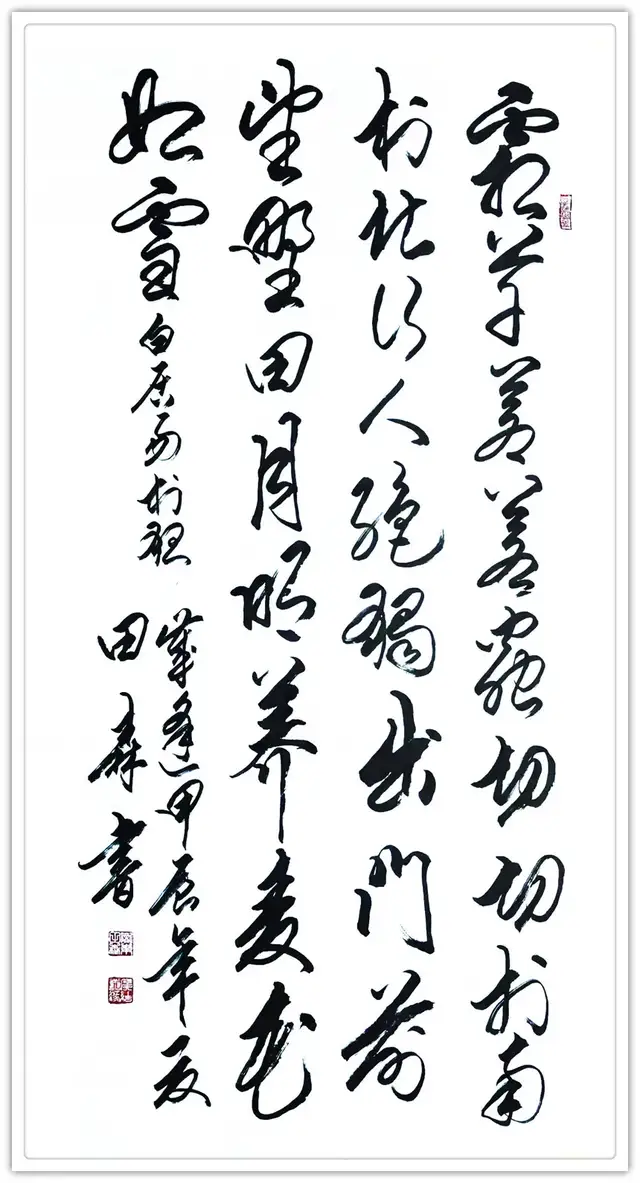 霜草蒼蒼蟲切切村南
村北行人絶獨出門前
望野田月明荞麦花
如雪 白居易村夜
歲逢甲辰年夏
田森書